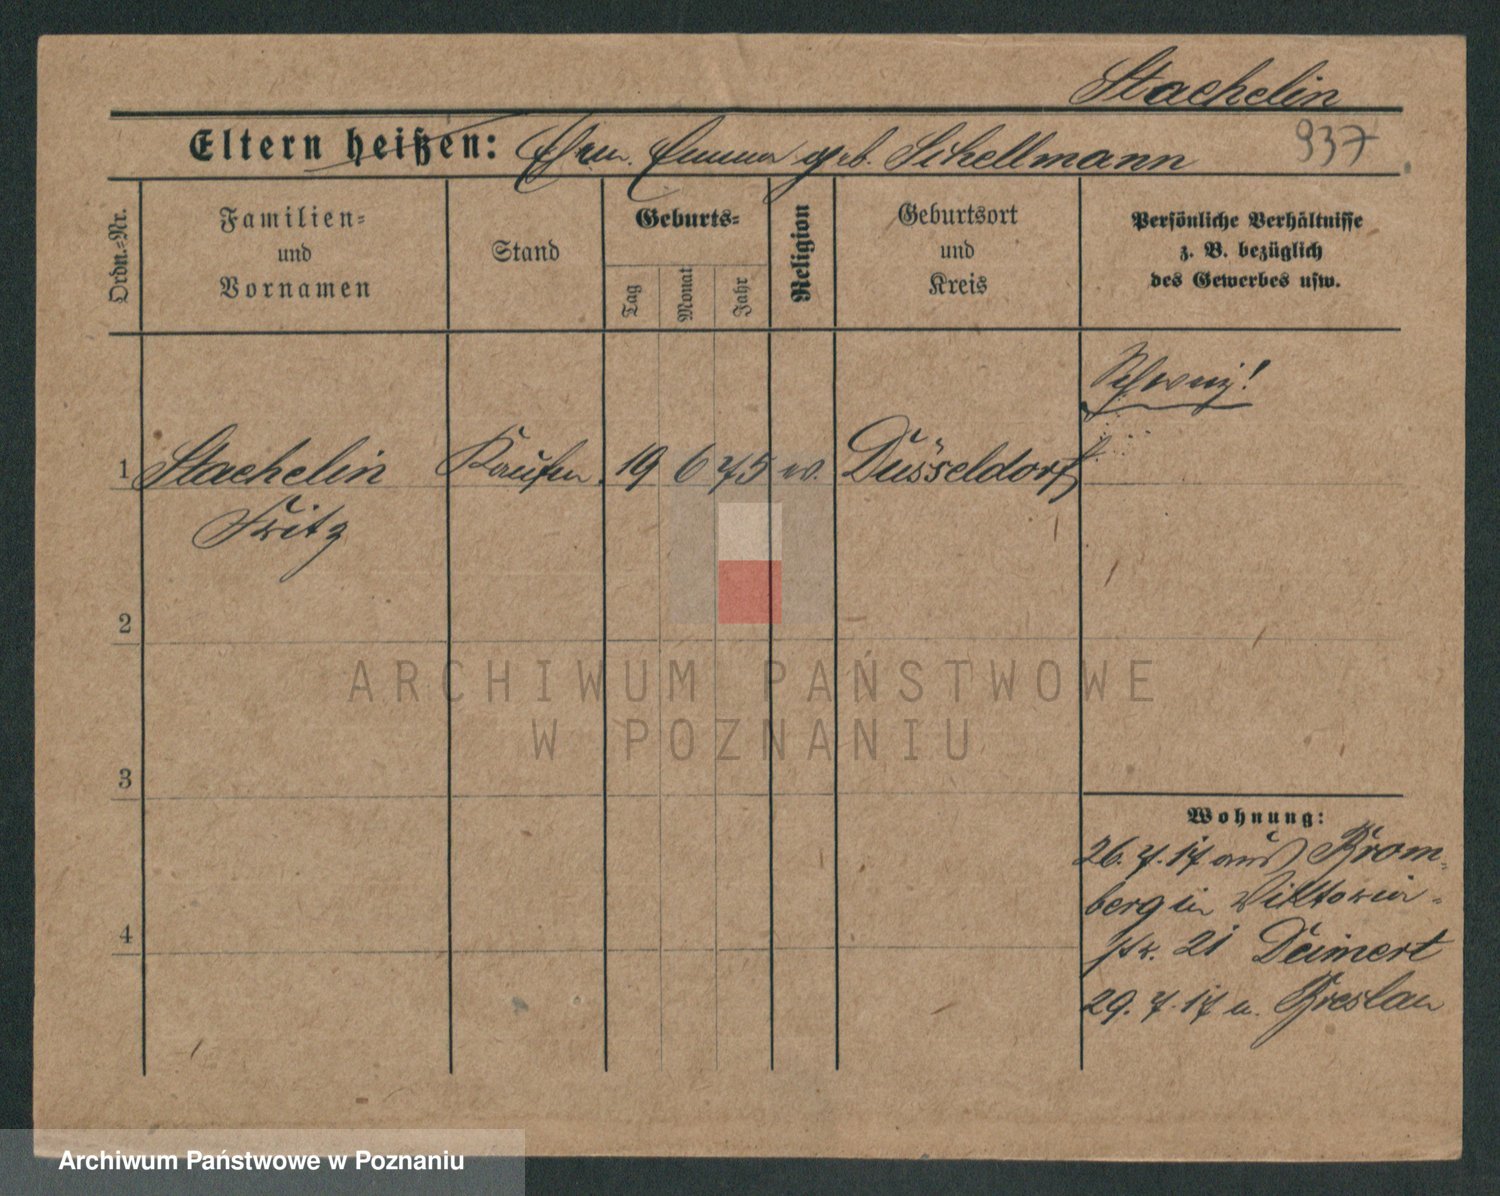 Stachelin
Eltern heißen: Ehfr. Emma geb. Schellmann
937
Ordn.-Nr.
Familien-
und
Vornamen
Stand
Geburts-
Tag
Monat
Jahr
Religion
Geburtsort
und
Kreis
Persönliche Verhältnisse
z. B. bezüglich
des Gewerbes usw.
Schweiz!
1 Stachelin Kaufm. 19 6 75 ev. Düsseldorf
Fritz
2
3
4
Wohnung:
26. 7. 17 aus Brom-
berg in Viktoria-
str. 21 Deimert
29. 7. 17 n. Breslau
ARCHIWUM PAŃSTWOWE
W POZNANIU
Archiwum Państwowe w Poznaniu